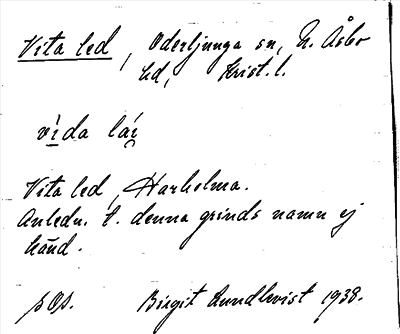 Vita led, Oderljunga sn, N. Åsbo
hd, Krist. l.
vida lái
Vita led, Harholma.
Anledn. t. denna grinds namn ej
känd.
Birgit Lundkvist 1938.